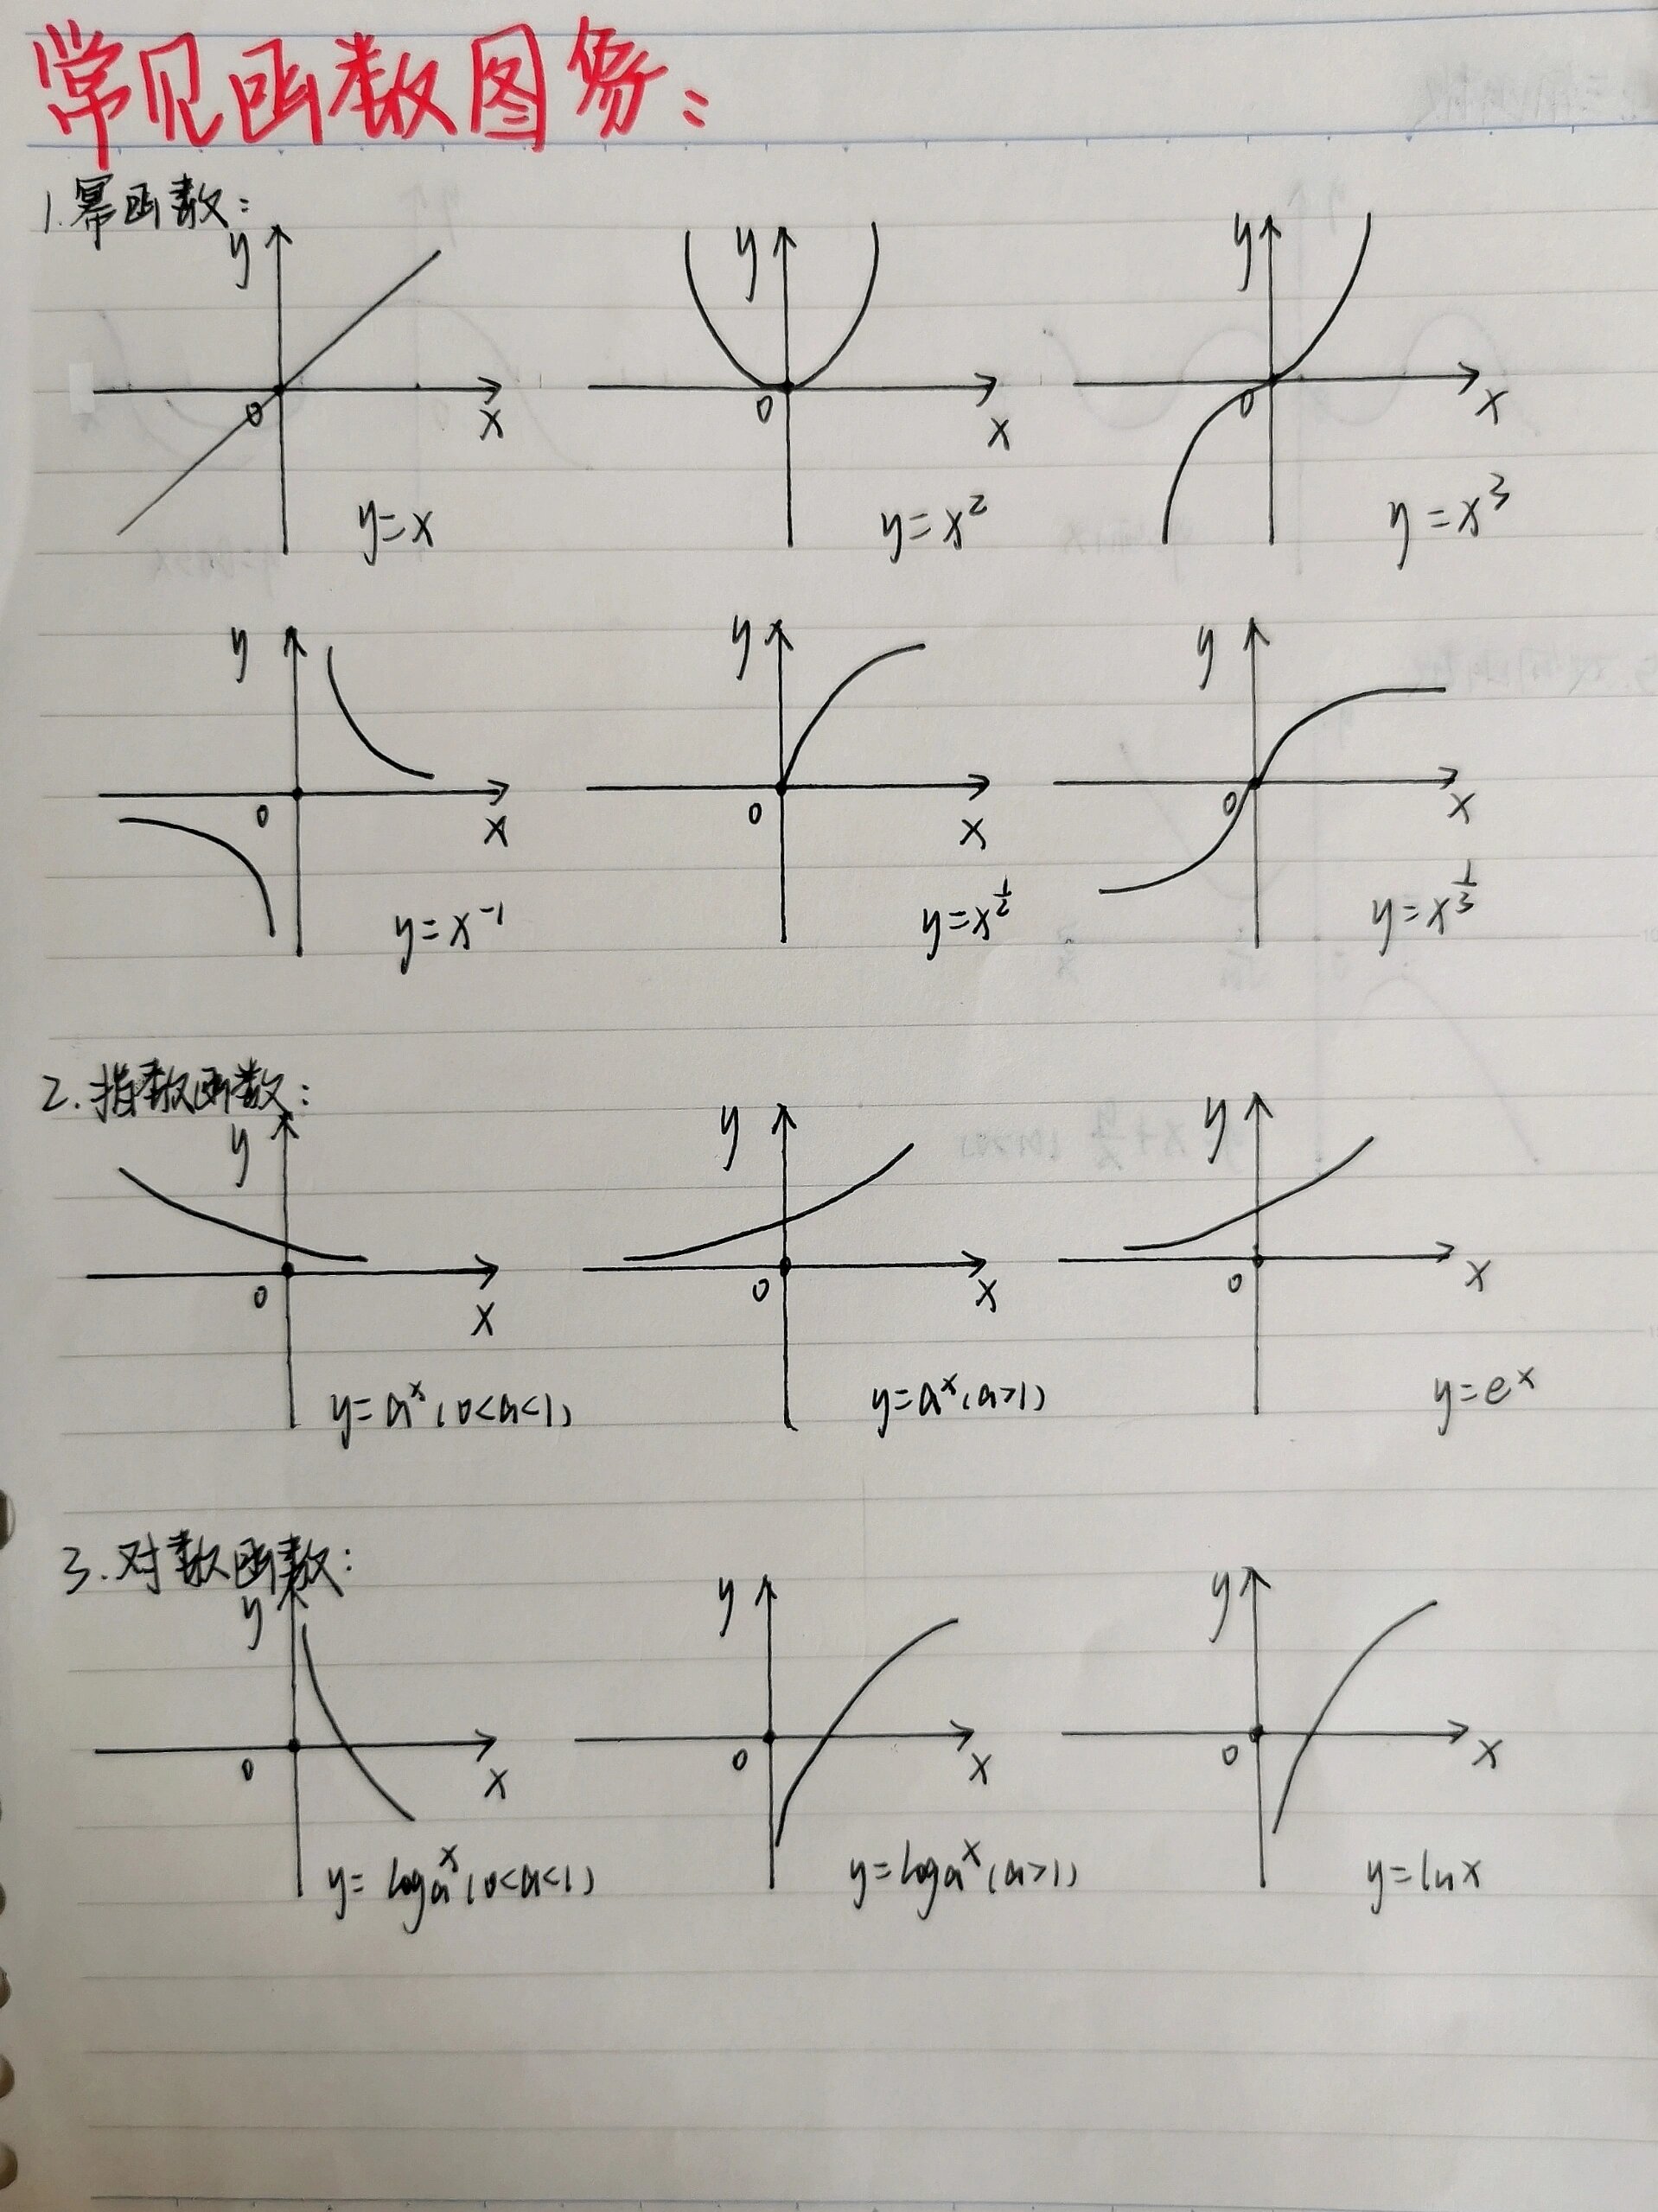 常见函数图象：
1.幂函数：
y y y
0 x 0 x 0 x
y=x y=x² y=x³
y y y
0 x 0 x 0 x
y=x⁻¹ y=x^½ y=x^⅓
2.指数函数：
y y y
0 x 0 x 0 x
y=aˣ(0<a<1) y=aˣ(a>1) y=eˣ
3.对数函数：
y y y
0 x 0 x 0 x
y=logₐˣ(0<a<1) y=logₐˣ(a>1) y=lnx